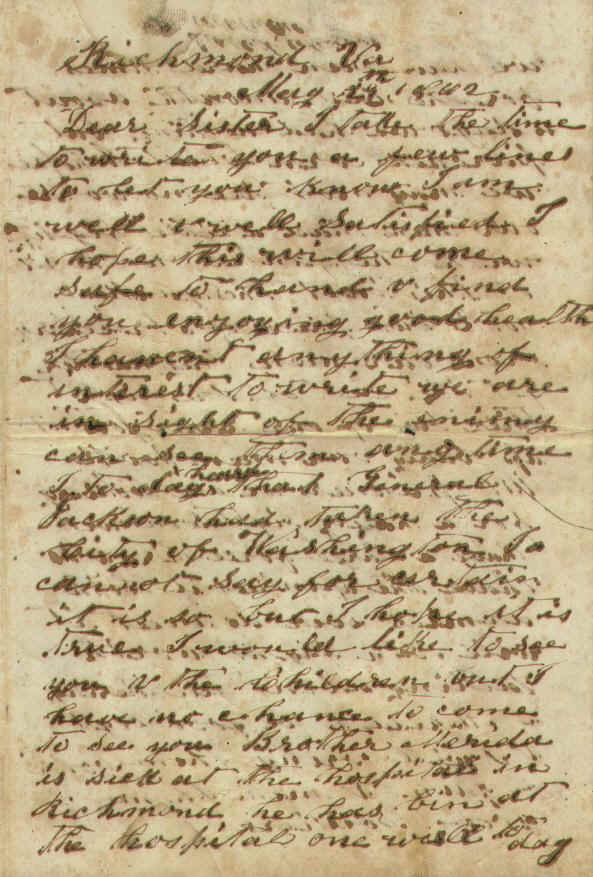 Richmond Va
May 1862
Dear Sister I take the time
to write you a few lines
to let you know I am
well & well satisfied I
hope this will come
safe to hand & find
you enjoying good health
I havent any thing of
intrist to write we are
in sight of the enimy
can see them any time
I to day hear that General
Jackson had taken the
City of Washington I
cannot say for certain
it is so but I hope it is
true I would like to see
you & the children but I
have no chance to come
to see you Brother Merida
is sick at the hospital in
Richmond he has bin at
the hospital one week to day